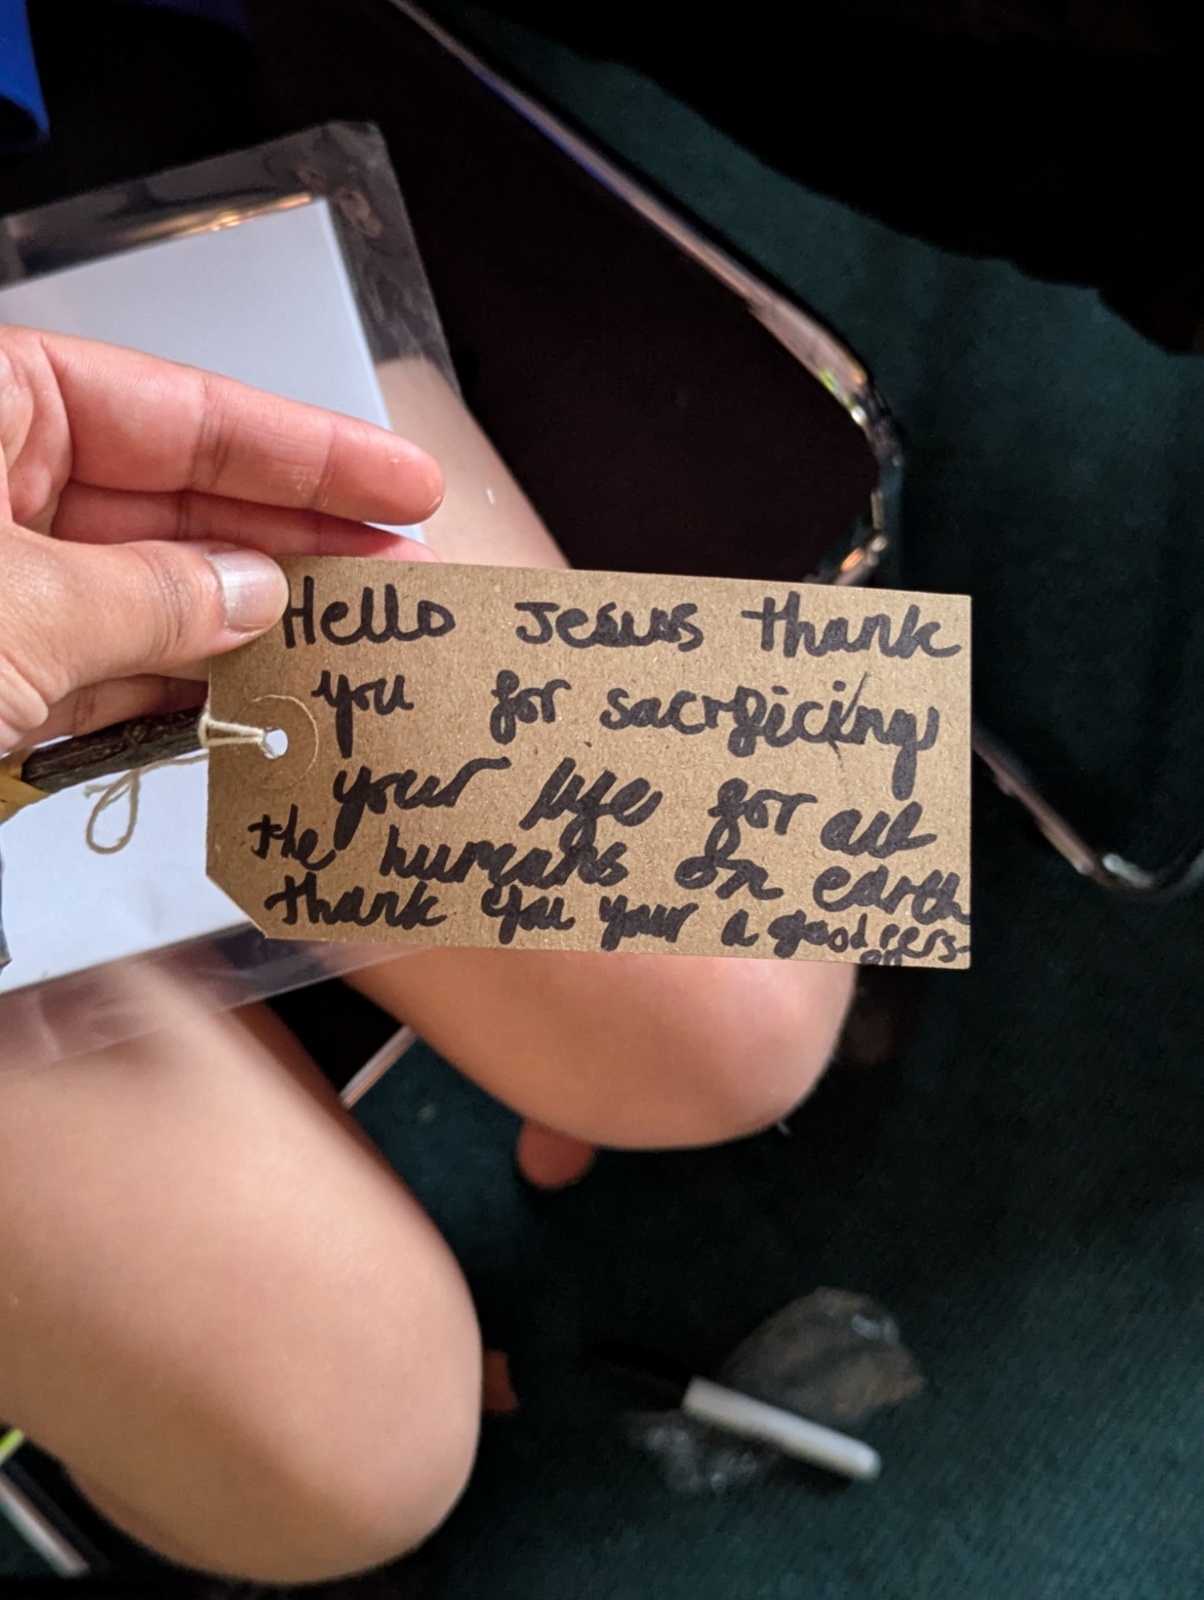 Hello Jesus thank
you for sacrificing
your life for all
the humans on earth
thank you your a good pers-
on